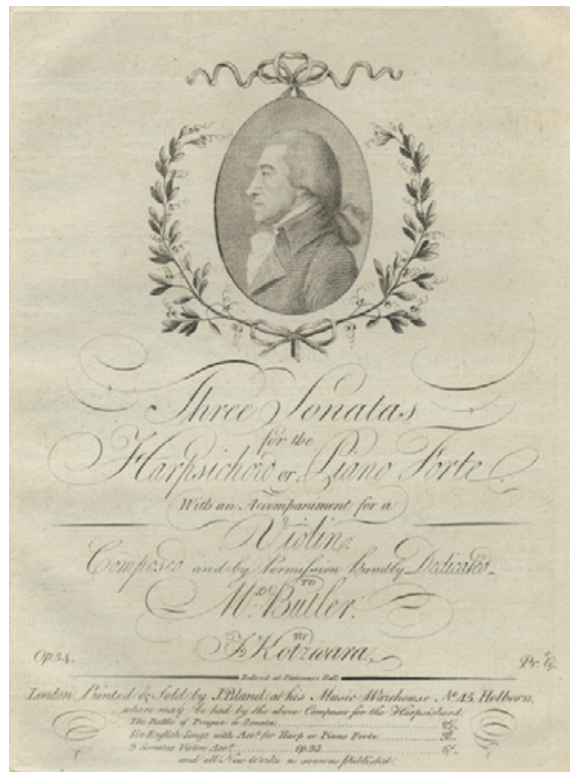 Three Sonatas
for the
Harpsichord or Piano Forte
With an Accompaniment for a
Violin,
Composed and by Permission humbly Dedicated
TO
Butler.
BY
F. Kotzwara.
Op. 34.
Pr. 6/
Entered at Stationers Hall
London, Printed & Sold by J. Bland, at his Music Warehouse No. 45, Holborn,
where may be had by the above Composer for the Harpsichord.
The Battle of Prague a Sonata
Six English Songs with Accts. for Harp or Piano Forte
3 Sonatas Violin Acct. Op. 33
and all New Works as soon as published.